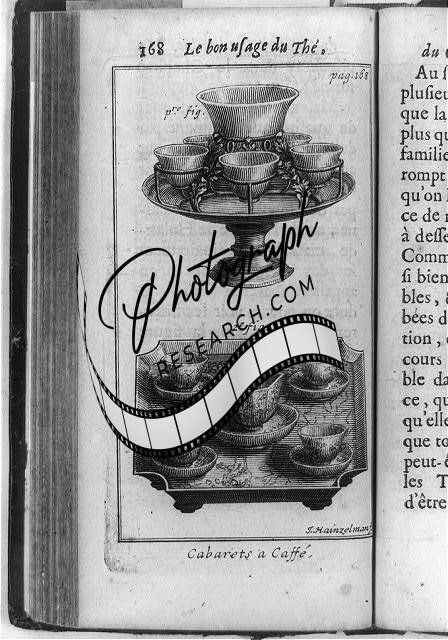 168 Le bon usage du Thé.
pag. 168
p.re fig.
Photograph
RESEARCH.COM
fig
J. Hainzelman
Cabarets a Caffé.
du
Au
plusieu
que la
plus qu
familie
rompt
qu'on
ce de
à desse
Comm
si bien
bles,
bées d
tion,
cours
ble da
ce, qu
qu'elle
que to
peut-ê
les T
d'être